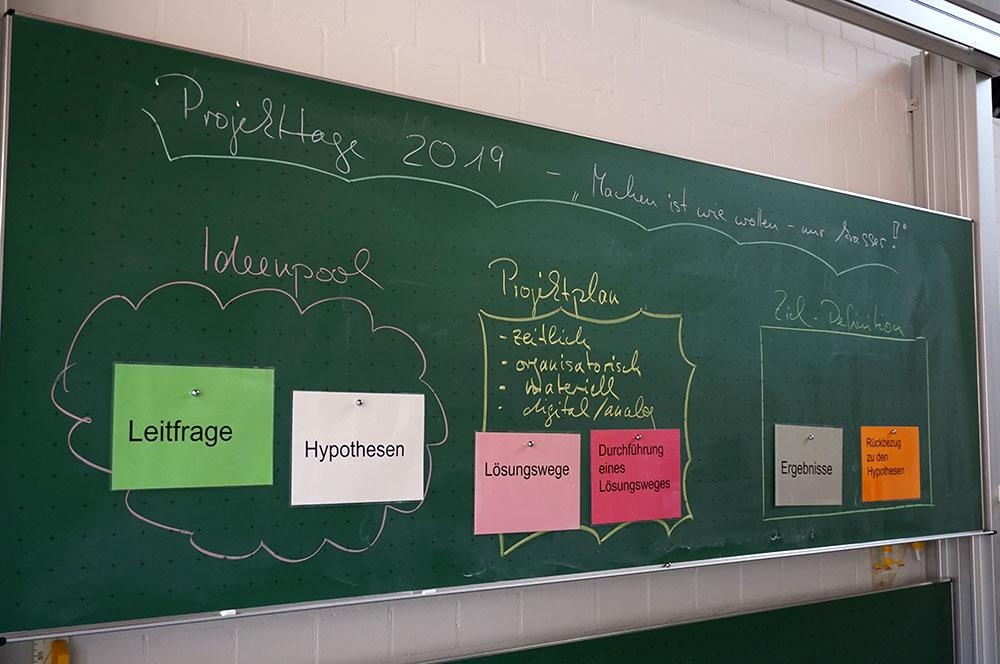 Projekttage 2019 - „Machen ist wie wollen - nur krasser!"
Ideenpool
Leitfrage
Hypothesen
Projektplan
- zeitlich
- organisatorisch
- materiell
- digital/analog
Lösungswege
Durchführung
eines
Lösungsweges
Ziel-Definition
Ergebnisse
Rückbezug
zu den
Hypothesen